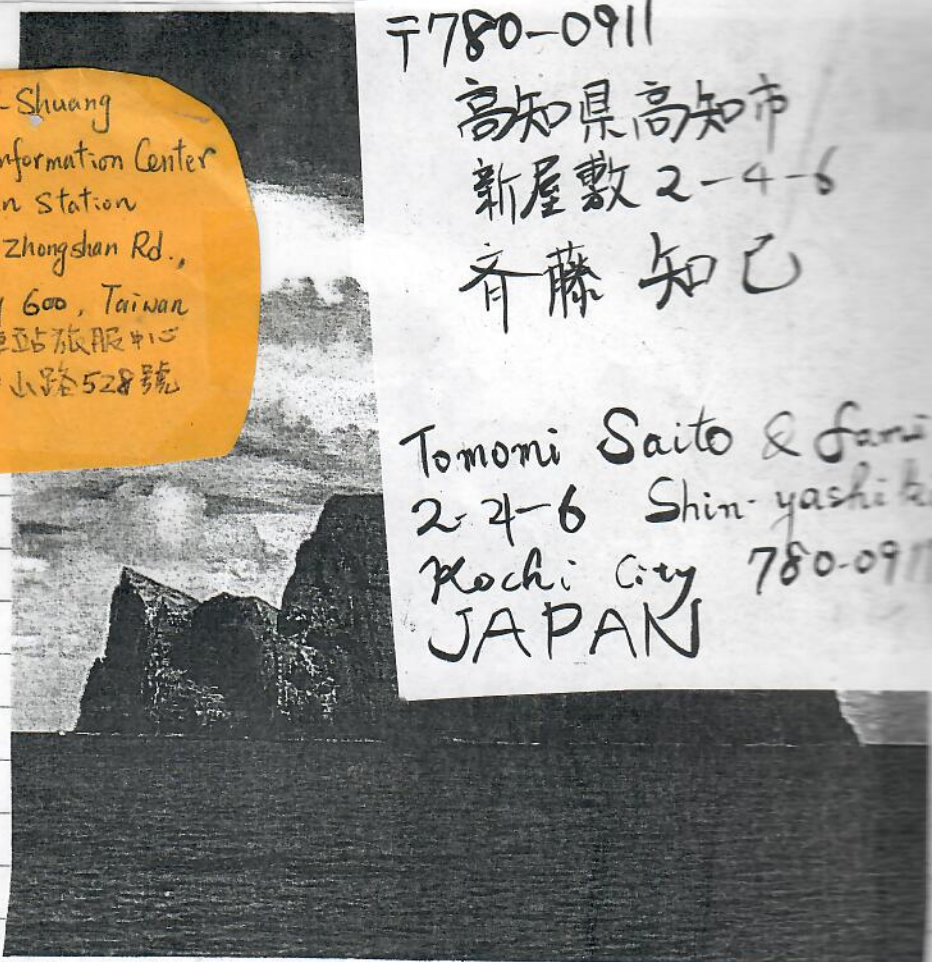 -Shuang
nformation Center
n Station
Zhongshan Rd.,
600, Taiwan
站旅服中心
山路528號
〒780-0911
高知県高知市
新屋敷2-4-6
斉藤 知己
Tomomi Saito & fami
2-4-6 Shin-yashiki
Kochi City 780-091
JAPAN